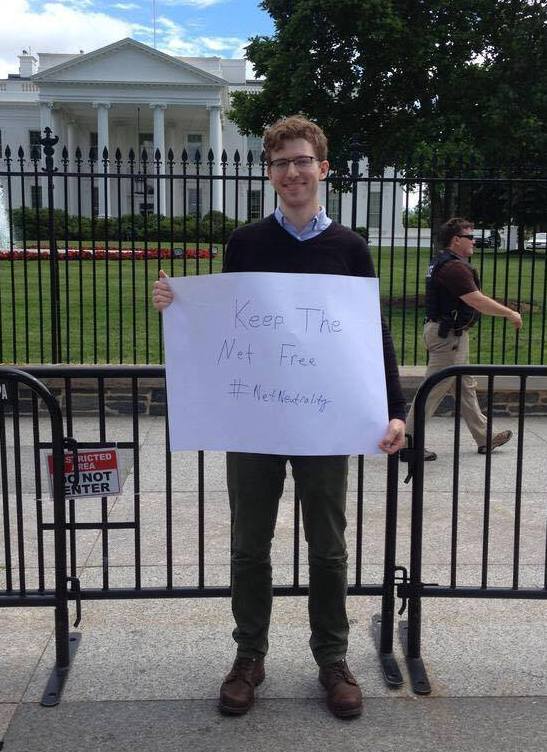 Keep The
Net Free
#NetNeutrality
RESTRICTED
AREA
DO NOT
ENTER